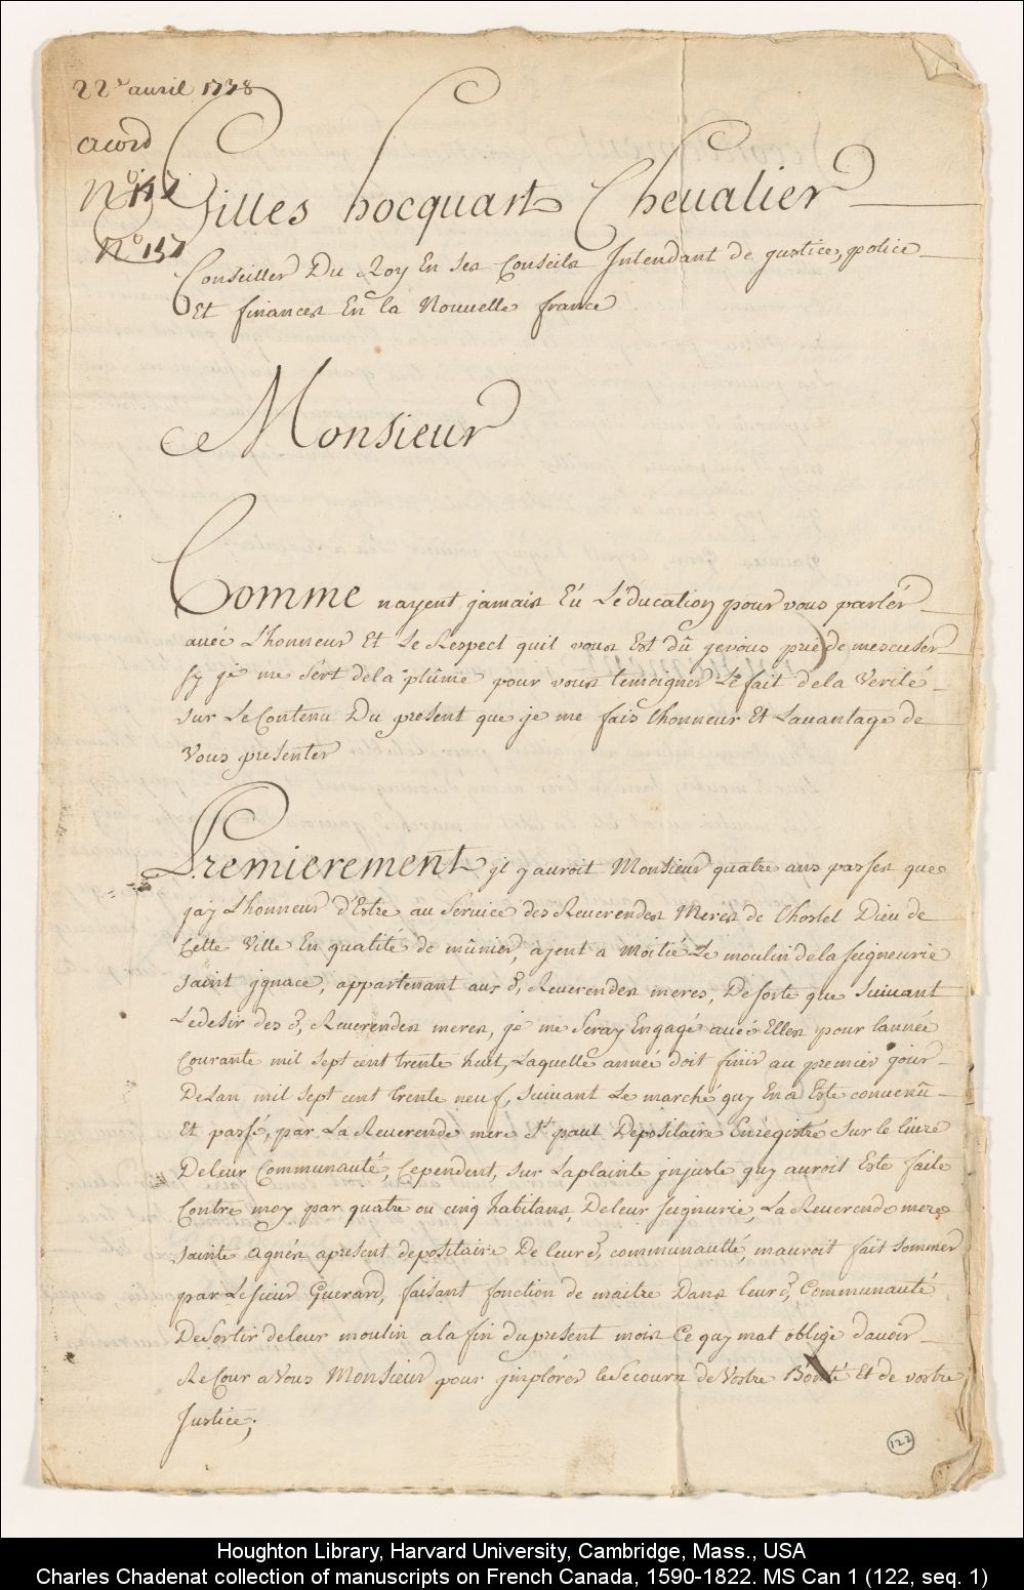 22e auril 1738
acord
No 157
Gilles hocquart Cheualier
Conseiller Du Roy En ses Conseils Intendant de justice, police
Et finances En la Nouuelle france
Monsieur
Comme nayent jamais Eú L'éducation pour vous parlér
auéc L'honneur Et Le Respect quil vous Est dû je vous prie de mescuser
sy je me sért dela plûme pour vous temoigner Le fait dela Verité
sur Le Contenu Du present que je me fais l'honneur Et Lauantage de
Vous presenter
Premierement yl y auroit Monsieur quatre ans passes que
jay L'honneur d'Estre au Service des Reuerendes Meres de lhostel Dieu de
Cette Ville En qualité de mûnier, ajent a moitié Le moulin de la seigneurie
saint jgnace, appartenant aux d, Reuerendes meres, De sorte que suiuant
Le desir des d, Reuerendes meres, je me seray Engagé auéc Elles pour lannée
Courante mil sept cent trente húit, Laquelle année doit finir au premier jour
De Lan mil sept cent trente neuf, suiuant Le marché quy En a Este conuenû
Et passé, par La Reuerende mere st paul Depositaire Enregistré sur le liure
De leur Communauté, Cependent, sur La plainte jnjuste quy auroit Este faite
Contre moy par quatre ou cinq habitans, De leur seignurie, La Reuerende mere
sainte agnés apresent depositaire De leur d, communautté, mauroit fait sommér
par Le sieur Guerard, faisant fonction de maitre Dans leur d, Communauté
De sortir de leur moulin a la fin du present mois Ce quy mat obligé dauoir
Re Cour a Vous Monsieur pour jmplórer le Secours de Vostre Bonté Et de vostre
Justice;
122
Houghton Library, Harvard University, Cambridge, Mass., USA
Charles Chadenat collection of manuscripts on French Canada, 1590-1822. MS Can 1 (122, seq. 1)